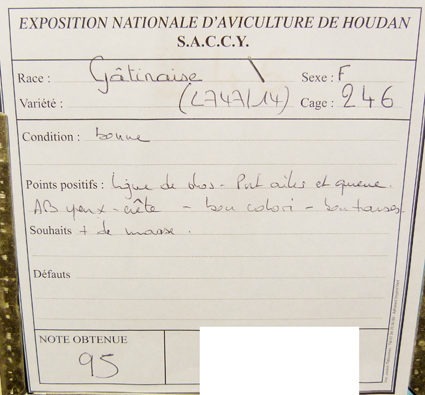 EXPOSITION NATIONALE D'AVICULTURE DE HOUDAN
S.A.C.C.Y.
Race : Gâtinaise Sexe : F
Variété : (L747/14) Cage : 246
Condition : bonne
Points positifs : ligne de dos - Port ailes et queue.
AB yeux - crête - bon coloris - bon
Souhaits + de masse.
Défauts
NOTE OBTENUE
95